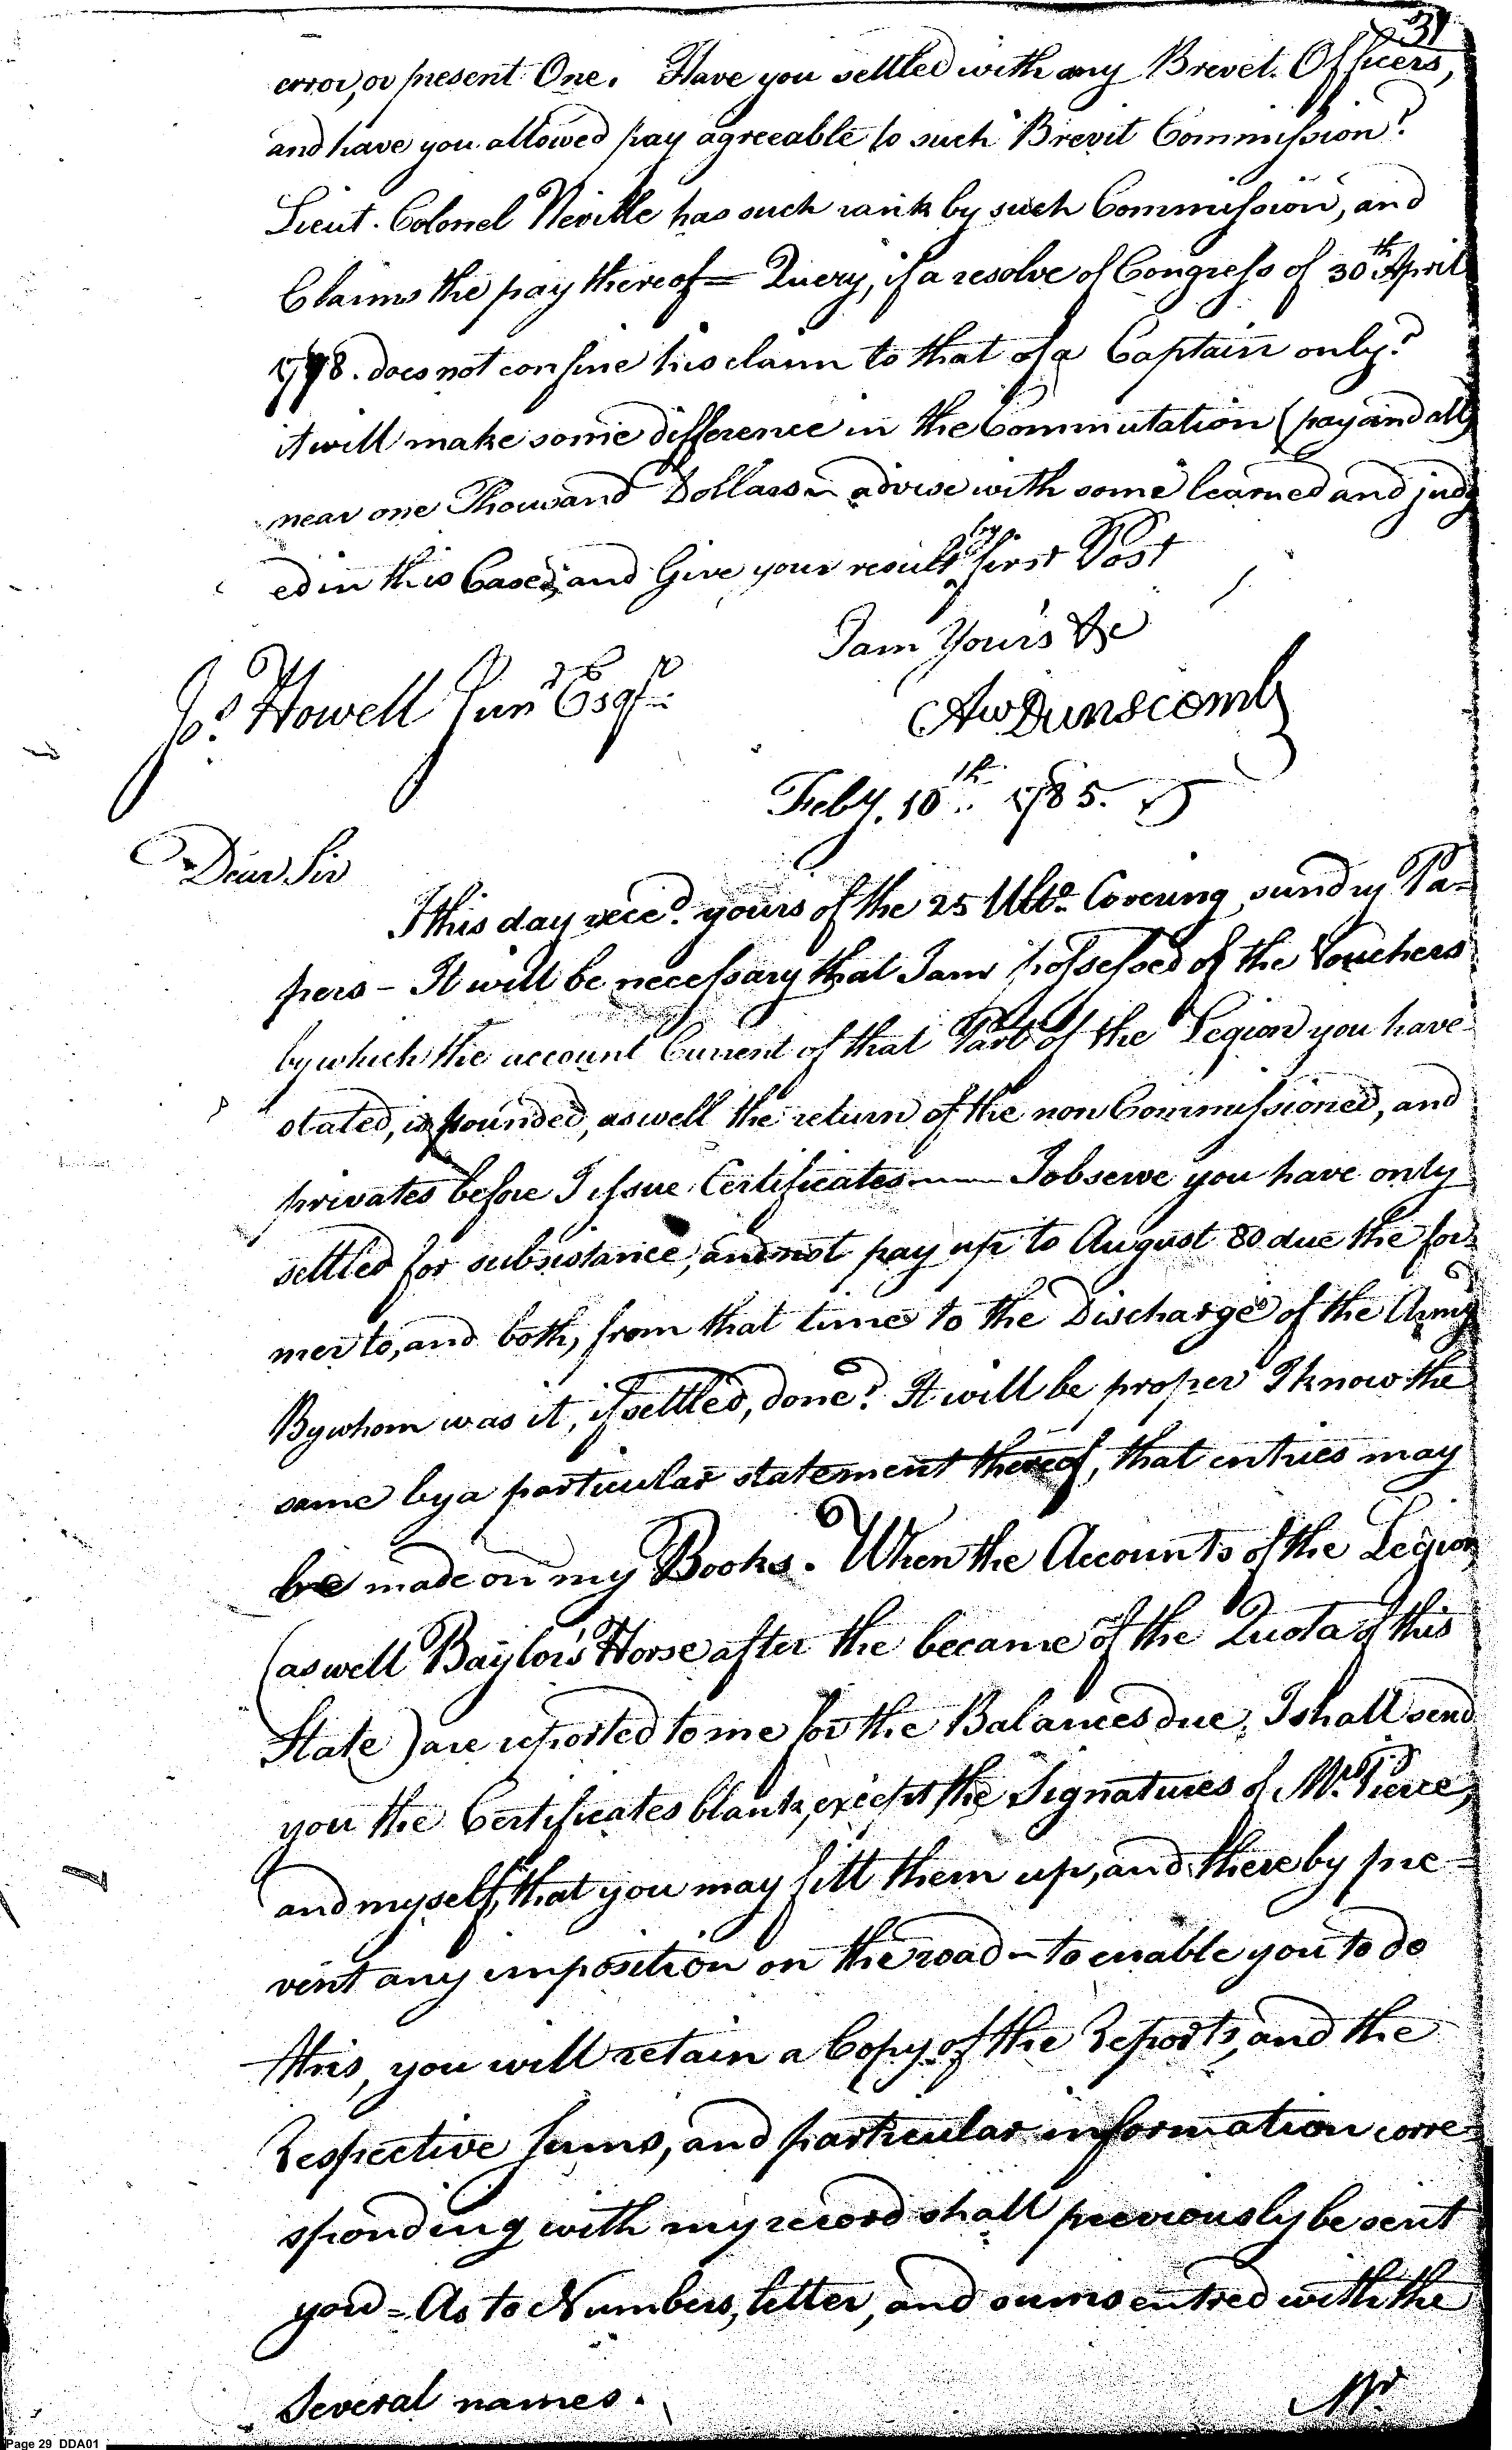 31
error, or present One. Have you settled with any Brevet. Officers,
and have you allowed pay agreeable to such Brevit Commission?
Lieut. Colonel Neville has such rank by such Commission, and
Claims the pay thereof = Query, if a resolve of Congress of 30th April
1778. does not confine his claim to that of a Captain only?
it will make some difference in the Commutation (pay and all)
near one Thousand Dollars ~ advise with some learned and judg
ed in this Case, and Give your result by first Post
I am Yours &c
Jos. Howell Junr Esqr.
Aw Dunscomb
Feby. 10th. 1785.
Dear Sir
I this day rece'd. yours of the 25 Ulto. Covering sundry Pa-
pers - It will be necessary that I am possessed of the Vouchers
by which the account Current of that Part of the Legion you have
stated, is founded, as well the return of the non Commissioned, and
privates before I issue Certificates —— I observe you have only
settled for subsistance, and not pay up to August 80 due the for-
mer to, and both, from that time to the Discharge of the Army
By whom was it, if settled, done? It will be proper I know the
same by a particular statement thereof, that entries may
be made on my Books. When the Accounts of the Legion
(as well Baylor's Horse after the became of the Quota of this
State) are reported to me for the Balances due, I shall send
you the Certificates blank, except the Signatures of Mr. Pierce,
and myself, that you may fill them up, and thereby pre=
vent any imposition on the road ~ to enable you to do
this, you will retain a Copy of the Reports, and the
Respective Sums, and particular information corre=
sponding with my record shall previously be sent
you = As to Numbers, letter, and sums entred with the
Several names.
Mr.
Page 29 DDA01